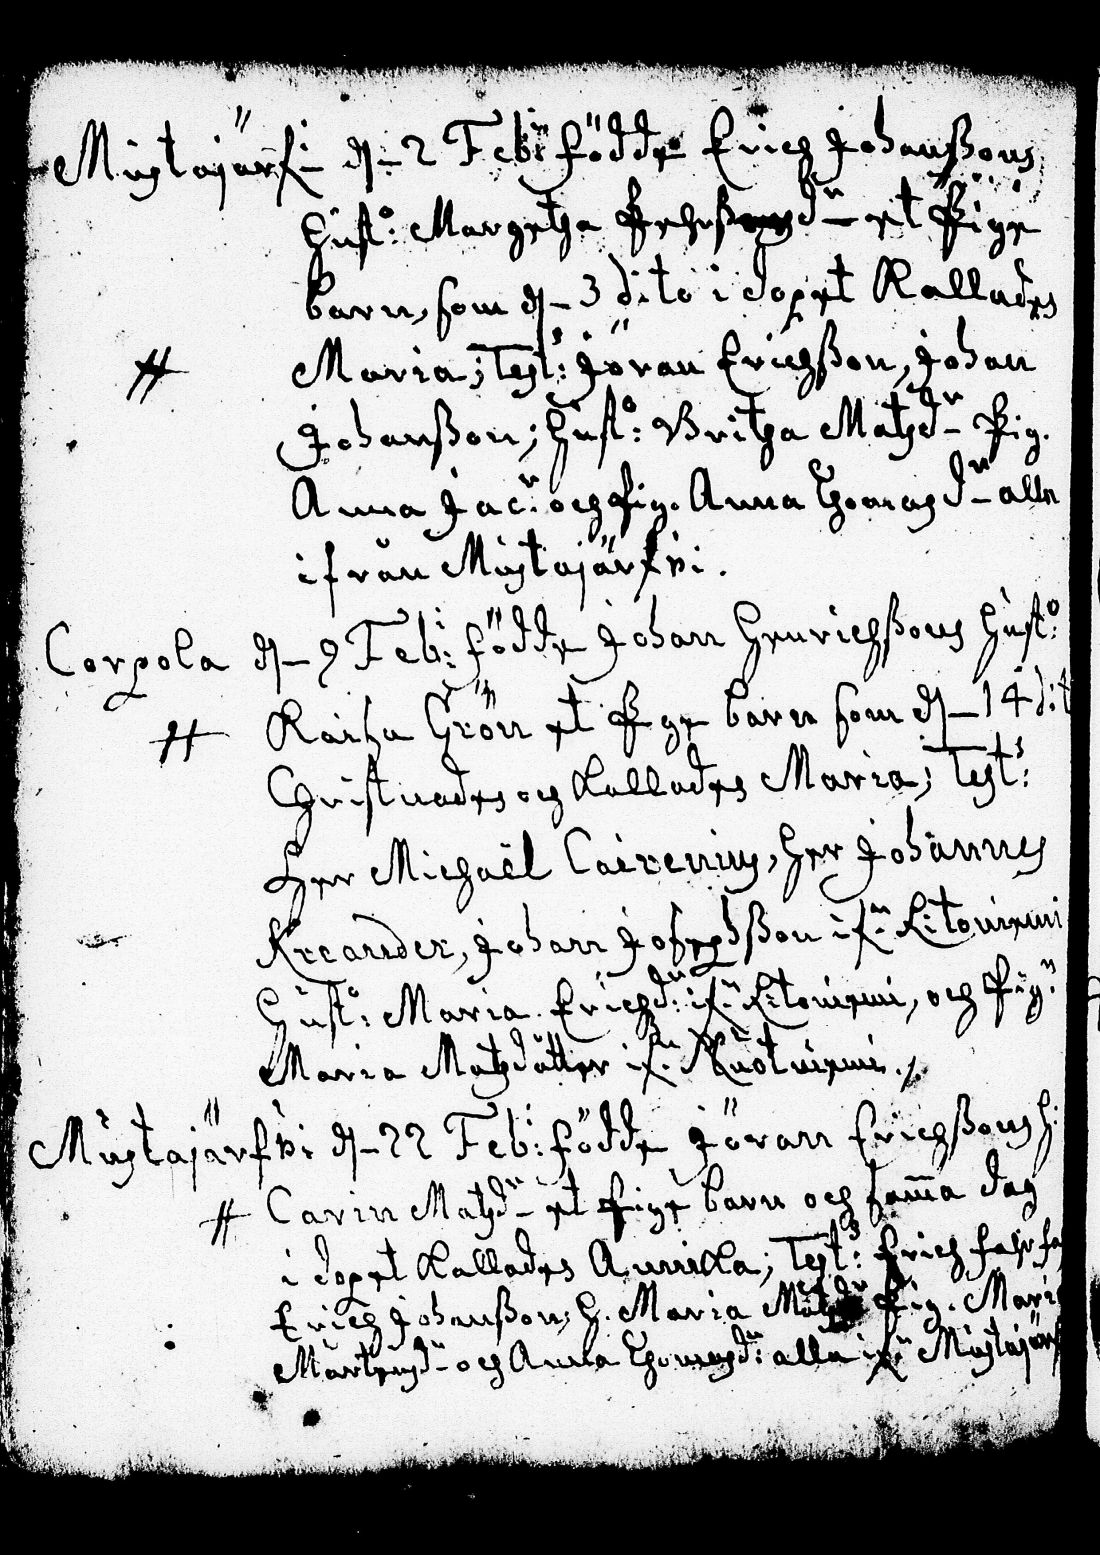 Mustajärfi d. 2 Feb: födde Erich Johanßons
Hust: Margetha Pehrß d:r et Pige
barn, som d. 3 dito i dopet Kallades
# Maria; Test: Jöran Erichßon, Johan
Johanßon; Hust: Britha Matzd:r Pig.
Anna Jac: och Pig. Anna Thomasd:r alla
ifrån Mustajärfwi.
Corpola d. 9 Feb: födde Johan Henrichßons Hust:
# Kaisa Grön et Pige barn som d. 14 dit
Christnades och Kallades Maria; Test:
Herr Michaël Cairenius, Herr Johannes
Kreander, Johan Josephßon if:n Kitoniemi
Hust: Maria Erichd:r if:n Kitoniemi, och Pig:
Maria Matzdotter if:n
Mustajärfwi d. 22 Feb: födde Jöran Erichßons h:
# Carin Matzd:r et Pige barn och samma dag
i dopet Kallades Annika; Test: Erich
Erich Johanßon, H. Maria Matzd:r Pig. Mari
Mårtensd:r och Anna Thomasd:r alla if:n Mustajärf